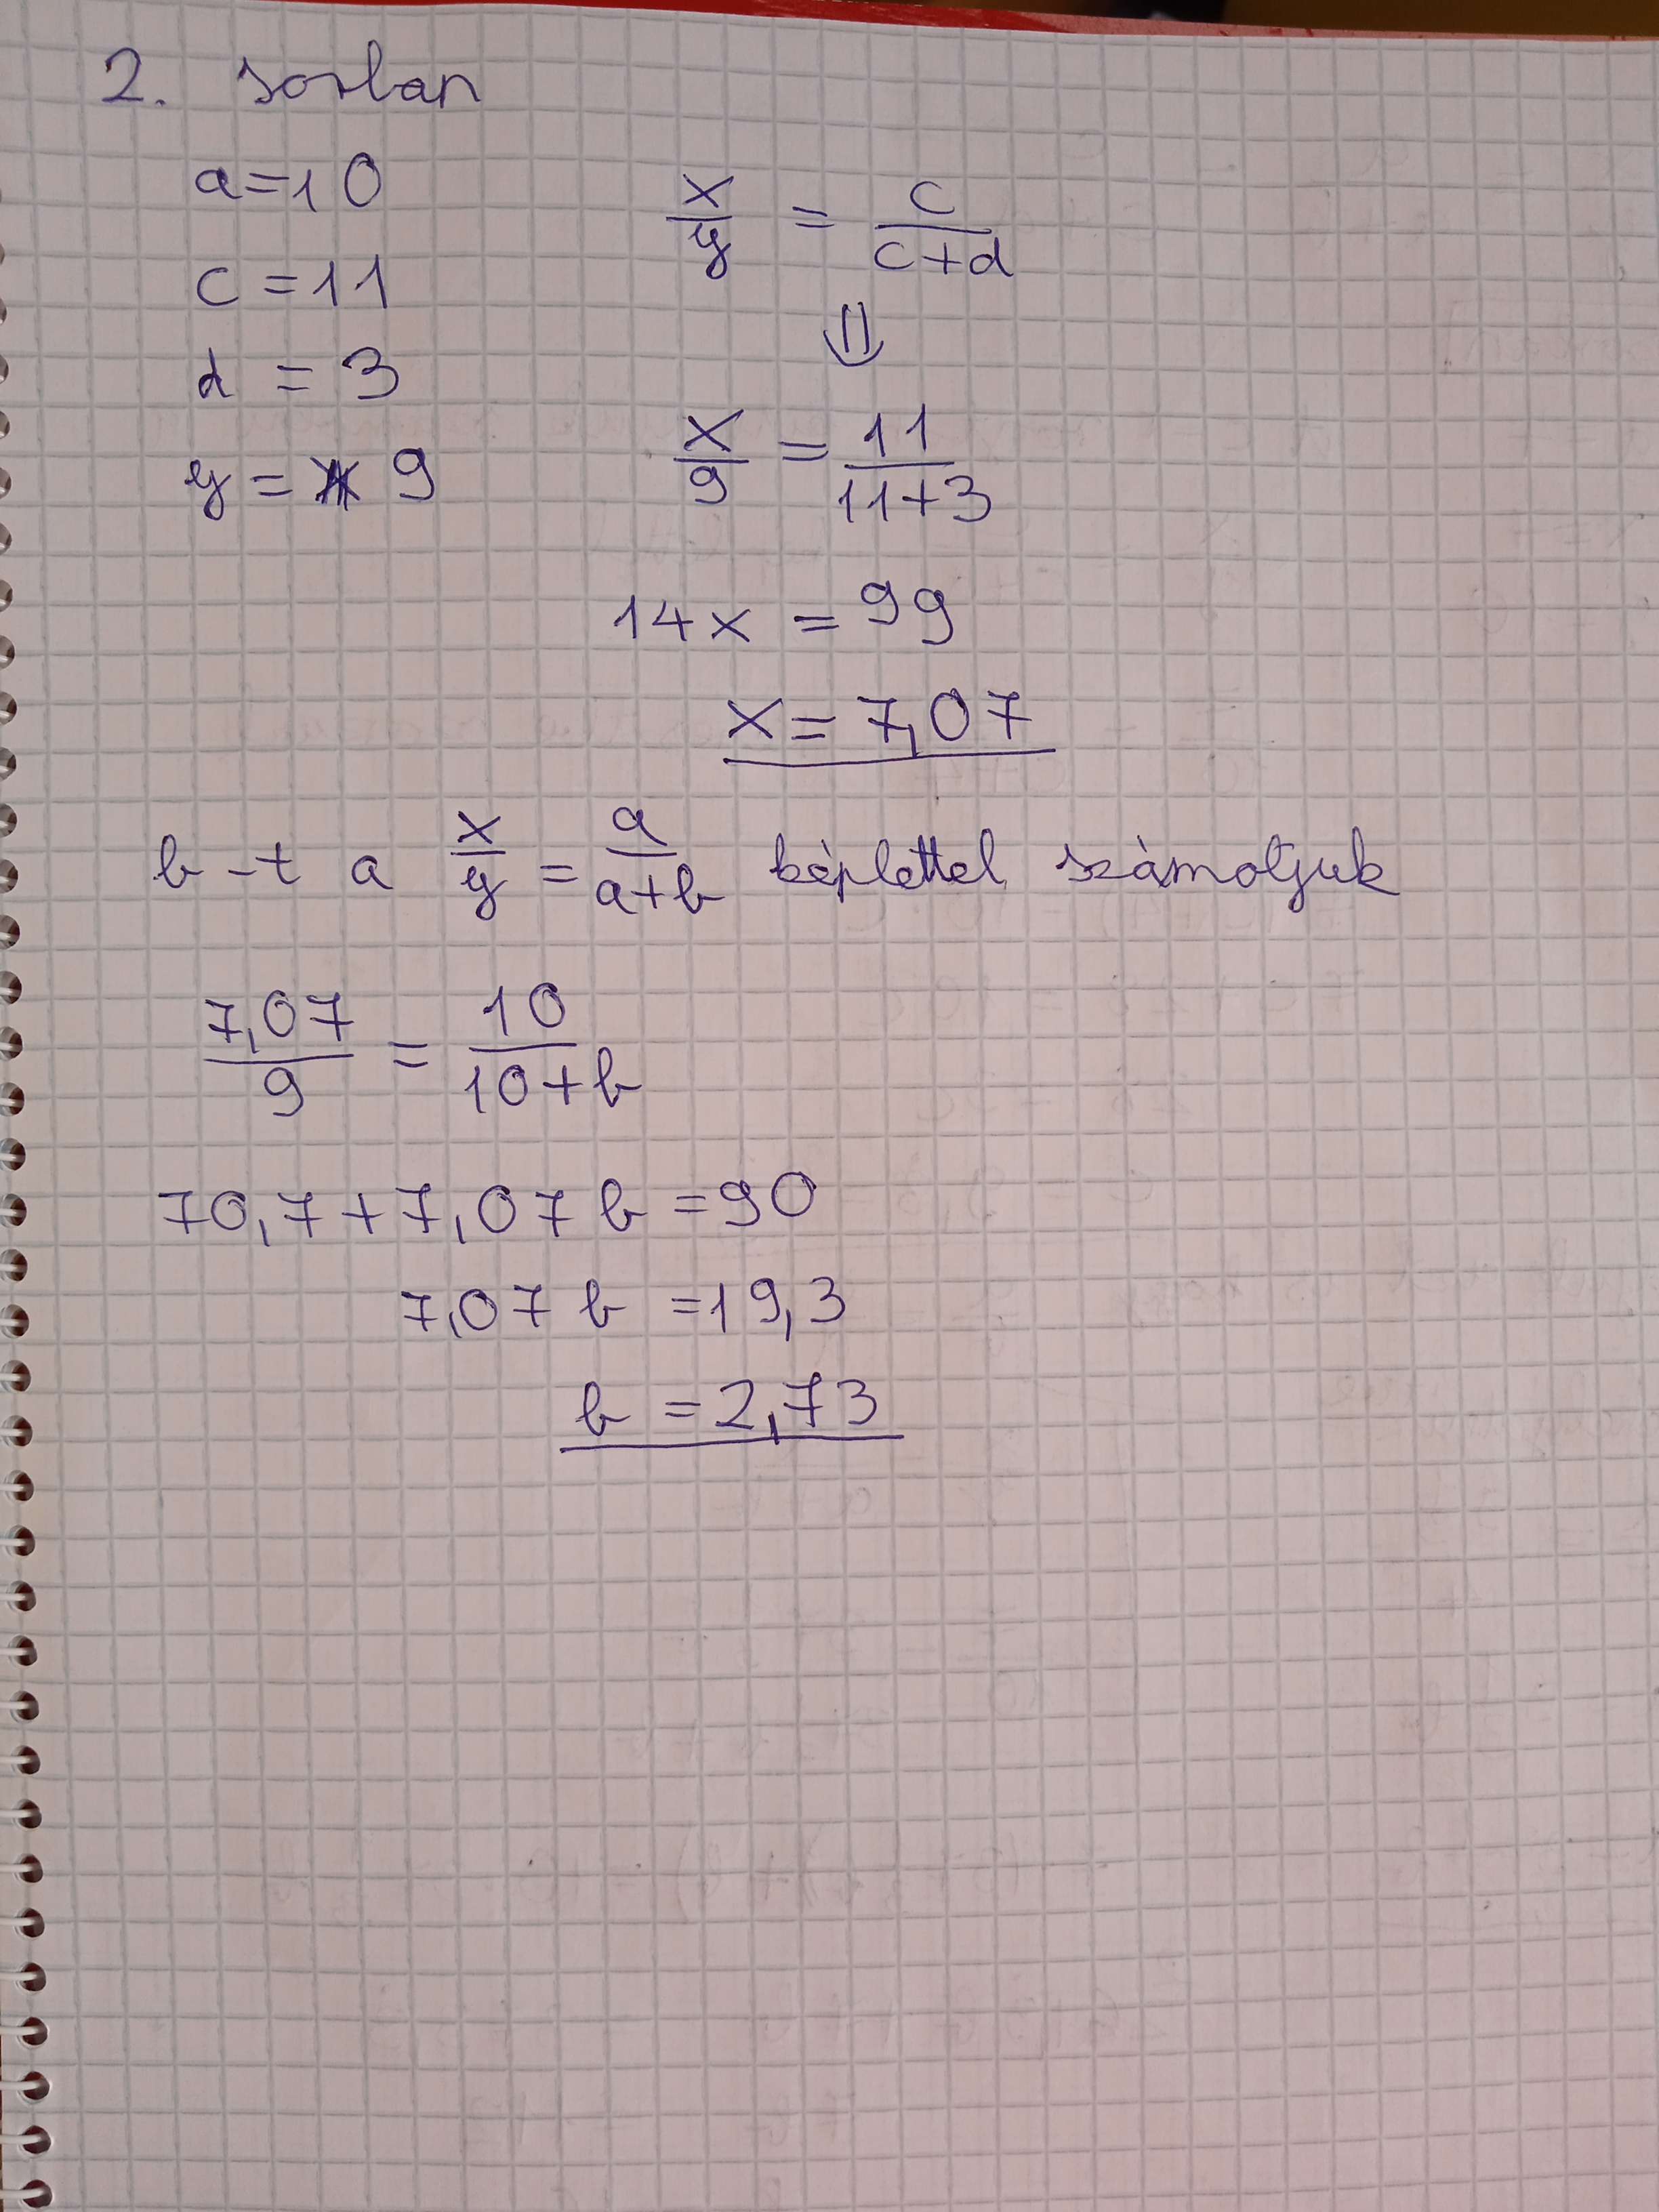 2. sorban
a=10
c=11
d=3
y=9
x/y = c/(c+d)
⇓
x/9 = 11/(11+3)
14x = 99
x = 7,07
b-t a x/y = a/(a+b) képlettel számoljuk
7,07/9 = 10/(10+b)
70,7+7,07b=90
7,07b=19,3
b=2,73